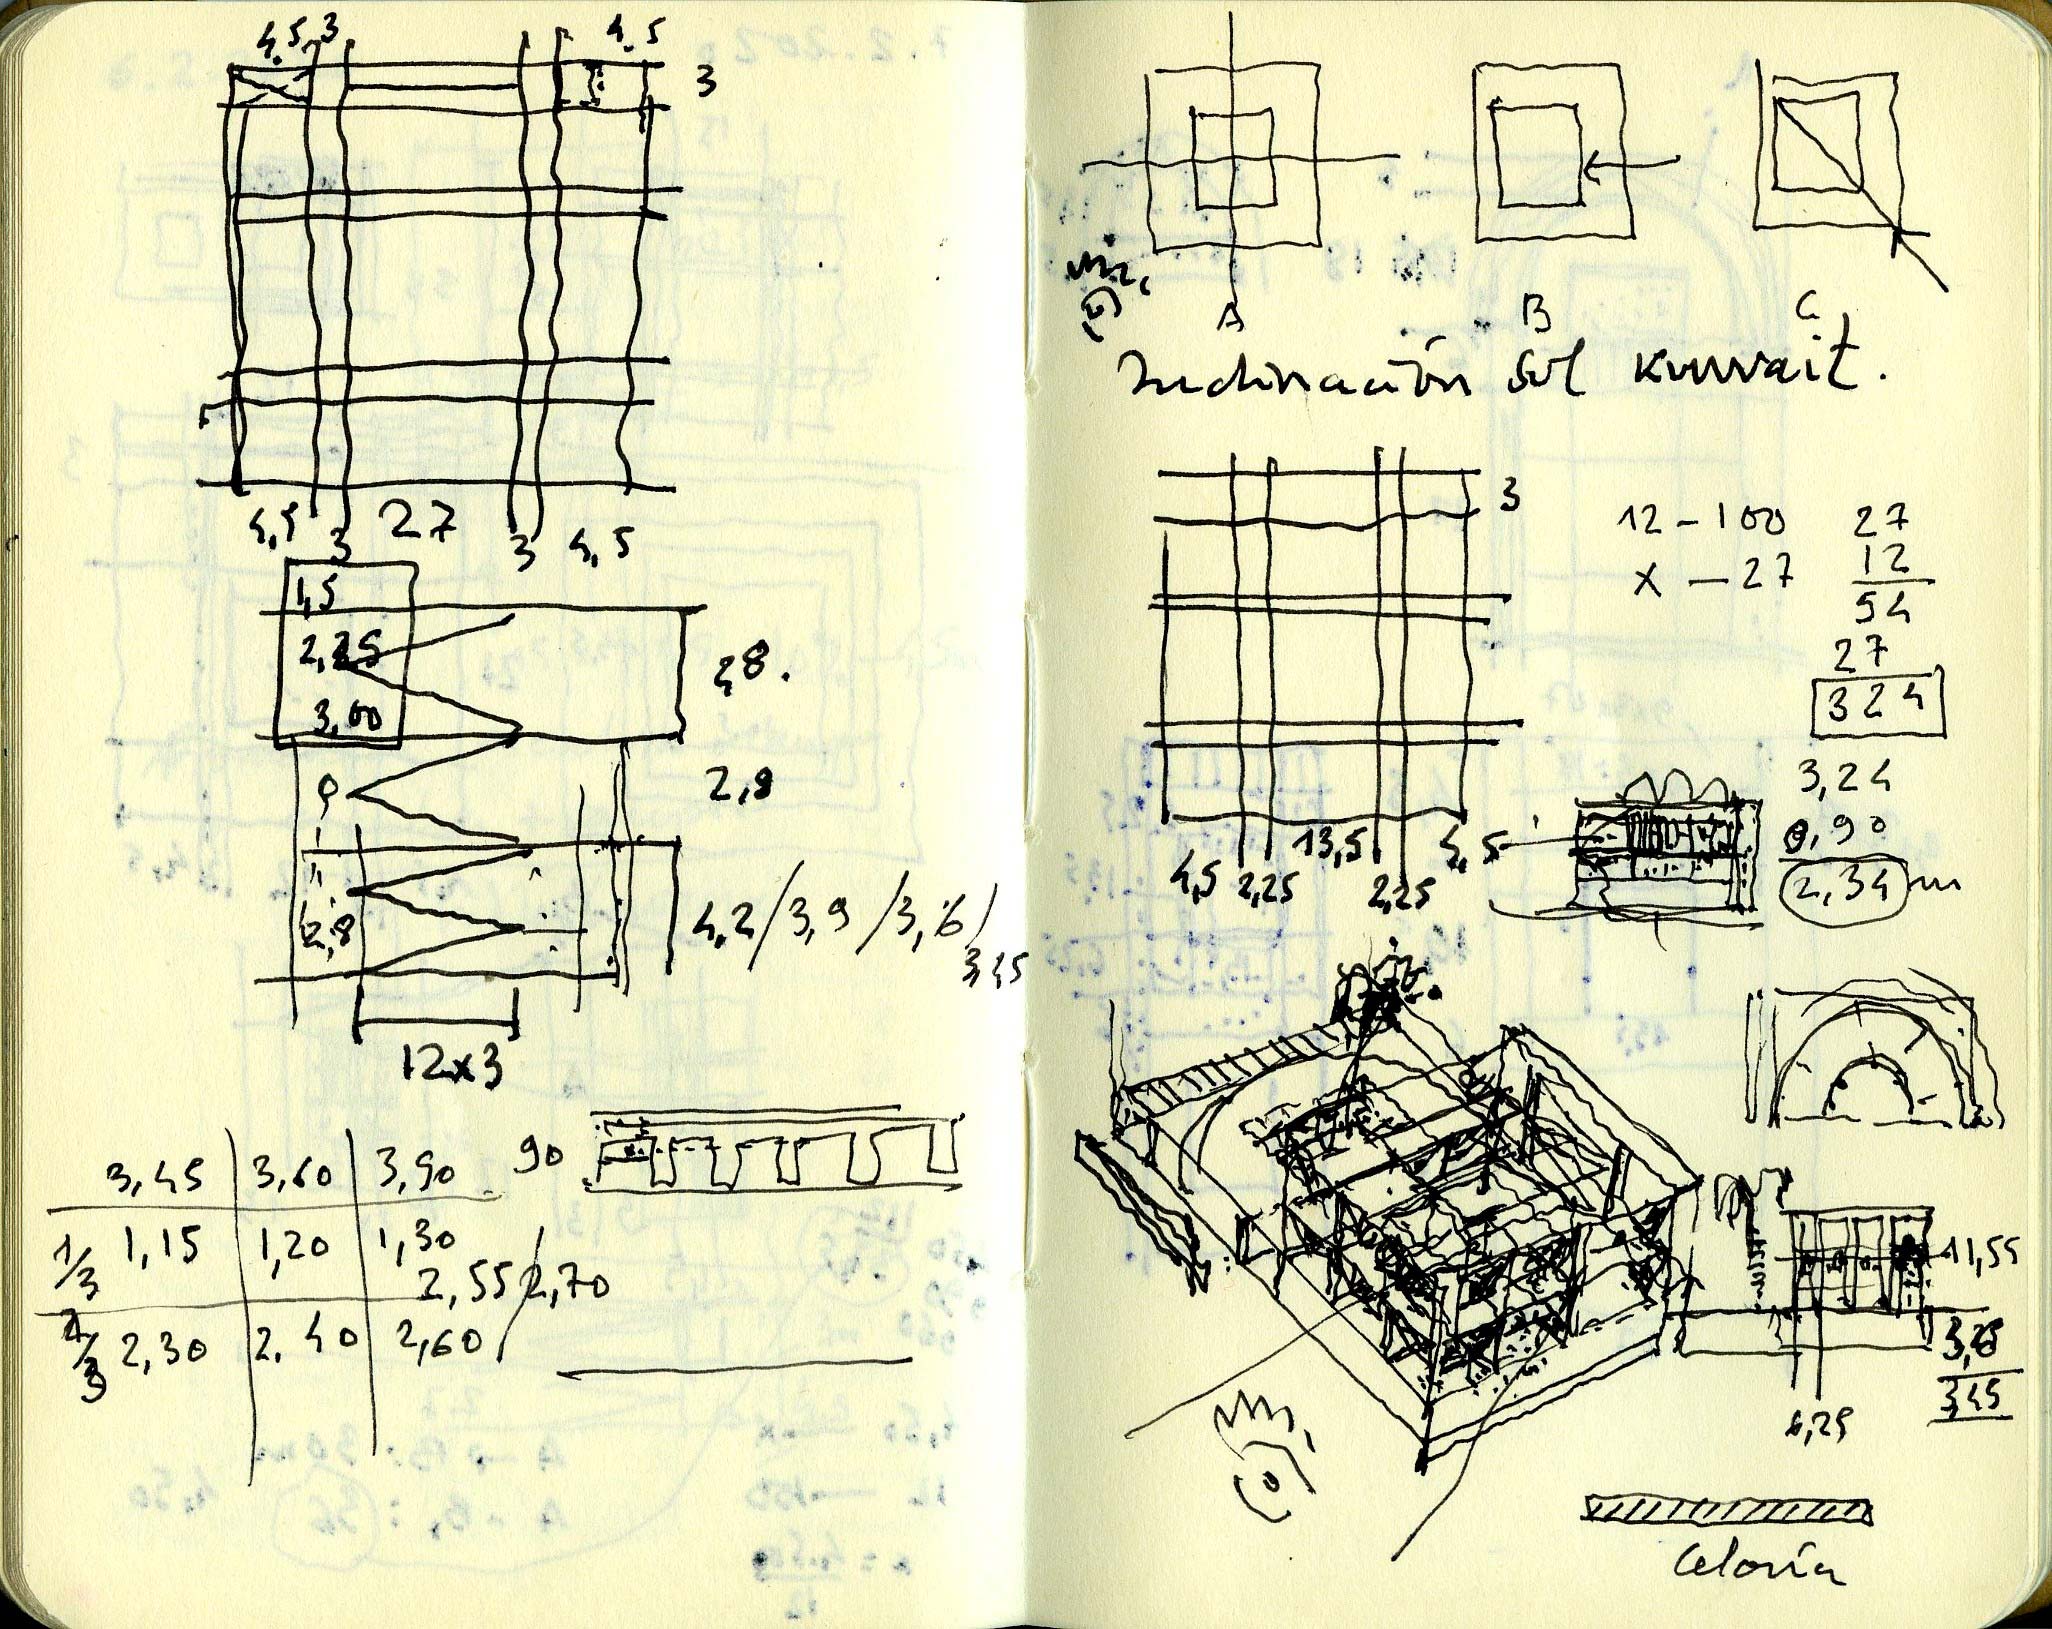 4,5 3 4,5
3
4,5 3 27 3 4,5
1,5
2,25
3,00
48.
2,8
2,8
4,2/3,9/3,6/
3,45
12x3
3,45 3,60 3,90
90
1/3 1,15 1,20 1,30
2,55/2,70
2/3 2,30 2.40 2,60
A B C
Inclinación sol Kuwait.
3
12 – 100
x – 27
27
12
54
27
324
3,24
0,90
2,34 m
4,5 2,25 13,5 2,25 4,5
11,55
3,45
Celosía